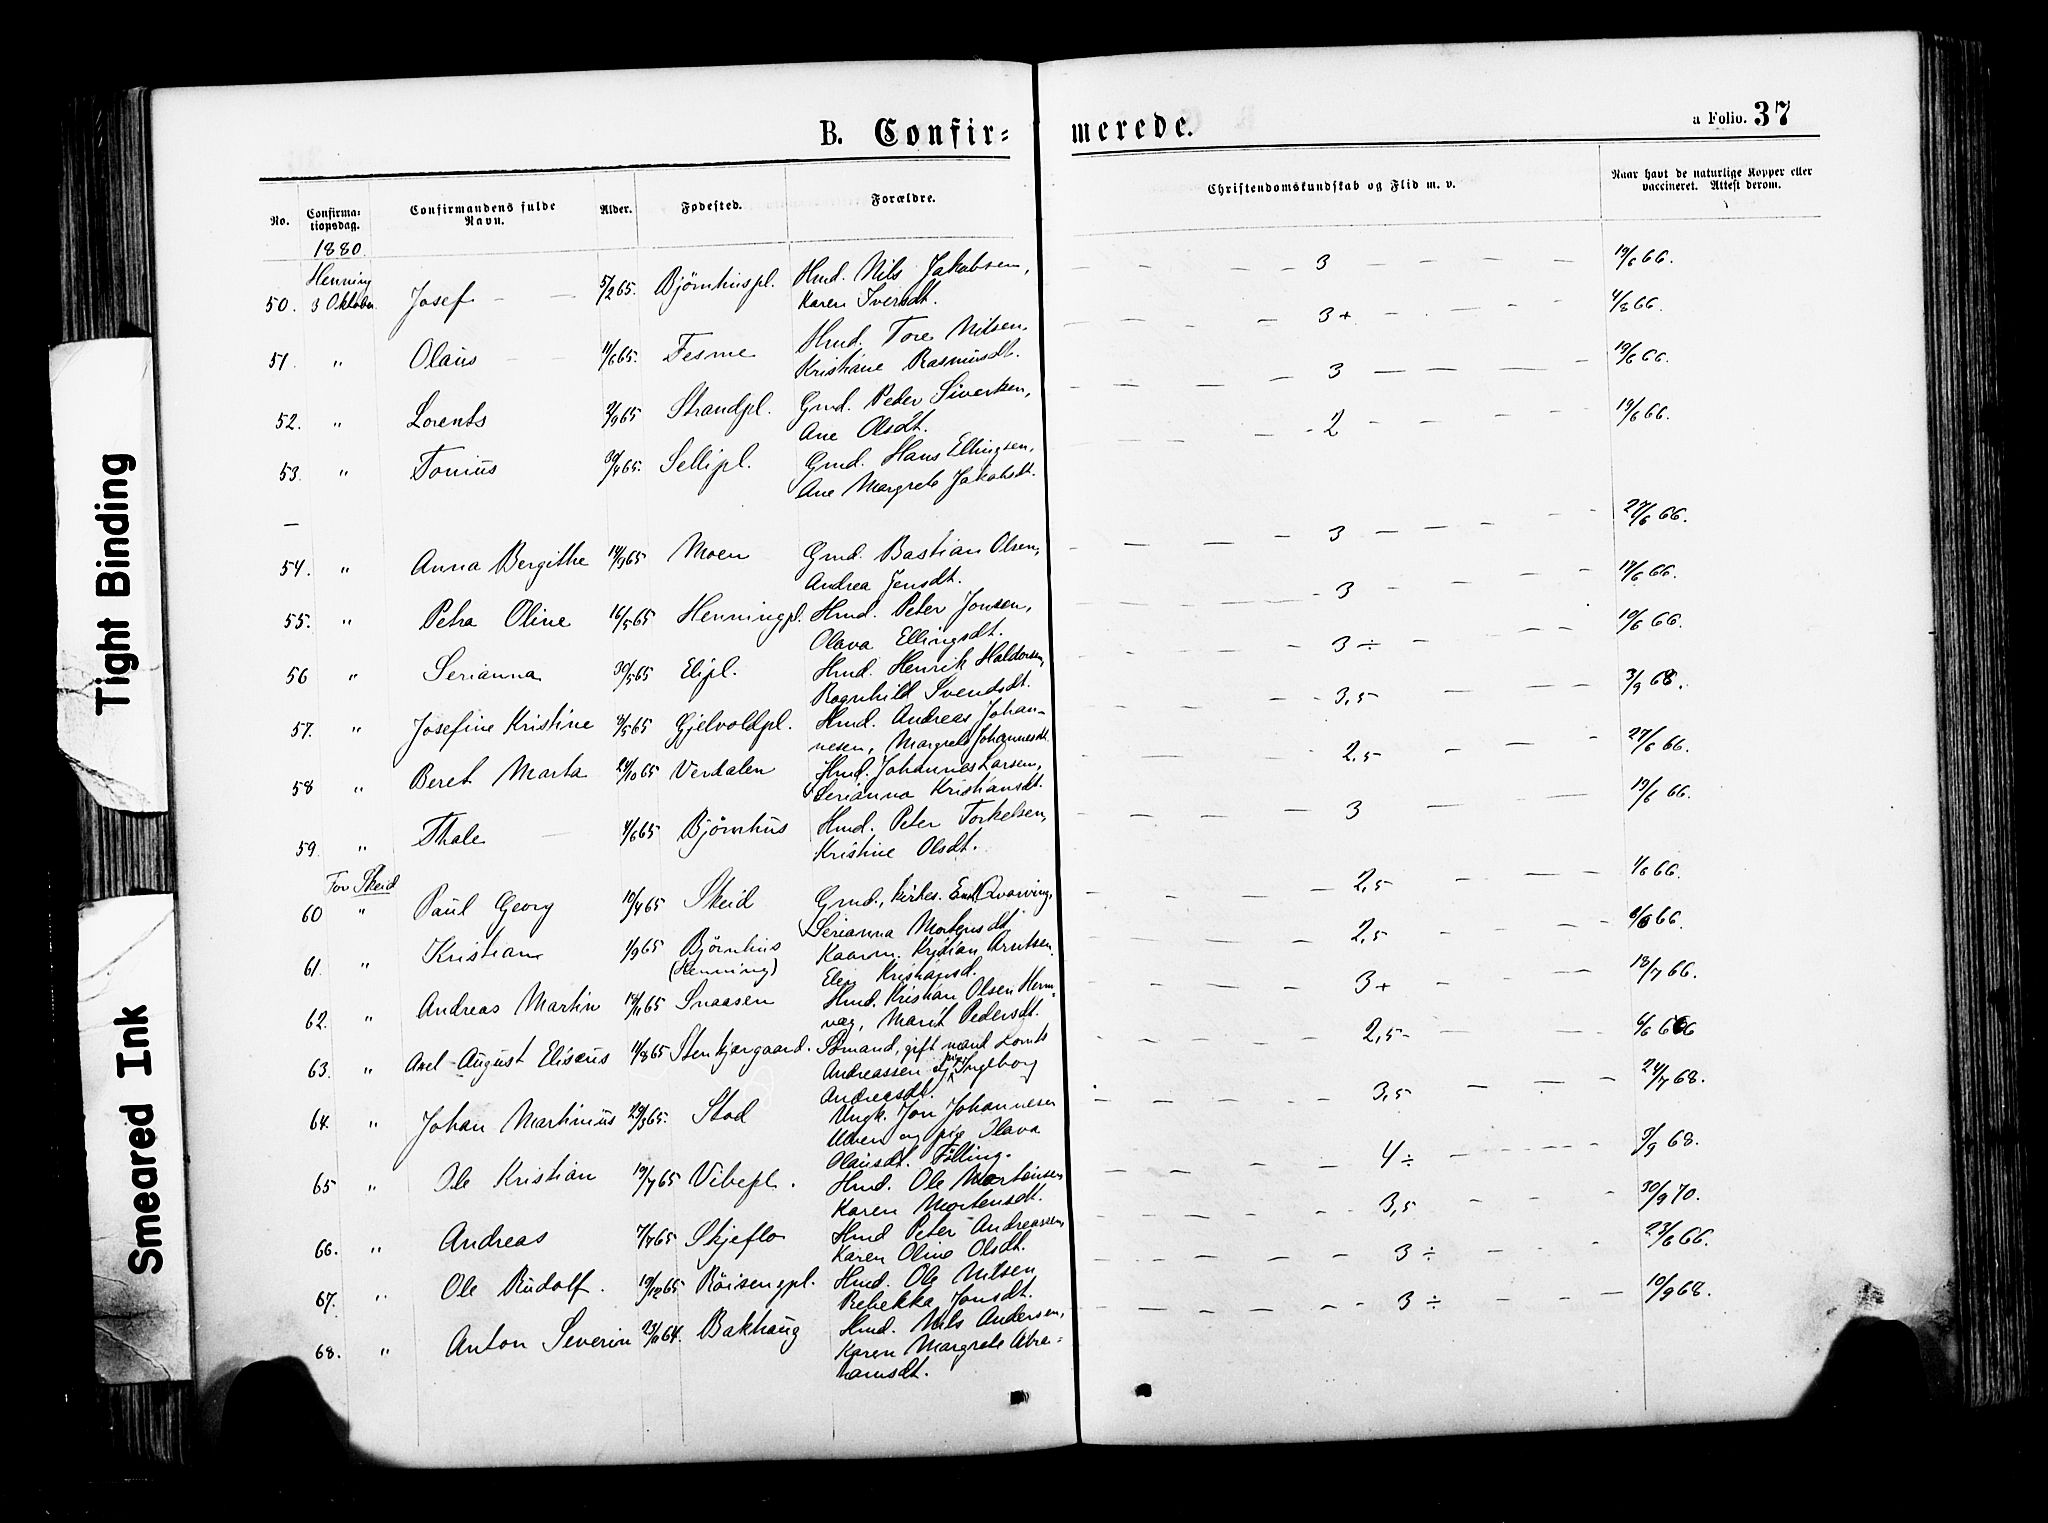 B. Confir= merede. a Folio. 37
No. Confirma-tionsdag. Confirmandens fulde Navn. Alder. Fødested. Forældre. Christendomskundskab og Flid m. v. Naar havt de naturlige Kopper eller vaccineret. Attest derom.
1880.
Henning
50. 3 Oktober Josef 5/2 65. Bjørnhuspl. Hmd. Nils Jakobsen, 3 19/6 66.
Karen Iversdt.
51. " Olaus 11/6 65. Tesme Hmd. Tore Nilsen, 3+ 4/8 66.
Kristiane Rasmusdt.
52. " Lorents 2/9 65 Strandpl. Gmd. Peter Siversen, 3 19/6 66.
Ane Olsdt.
53. " Tonius 30/4 65. Sellipl. Gmd. Hans Ellingsen, 2 19/6 66.
Ane Margrete Jakobsdt.
—
54. " Anna Bergithe 14/9 65 Moen Gmd. Bastian Olsen, 3 27/6 66.
Andrea Jensdt.
55. " Petra Oline 16/5 65 Henningpl. Hmd. Peter Jonsen, 3 19/6 66.
Olava Ellingsdt.
56 " Serianna 30/5 65 Elipl. Hmd. Henrik Haldorsen, 3÷ 19/6 66.
Ragnhild Svendsdt.
57. " Josefine Kristine 8/5 65 Gjelvoldpl. Hmd. Andreas Johan- 3,5 3/9 68.
nesen, Margrete Johannesdt.
58 " Beret Marta 24/10 65 Verdalen Hmd. Johannes Larsen, 2,5 27/6 66.
Serianna Kristiansdt.
59. " Thale 4/6 65 Bjørnhus Hmd. Peter Torkelsen, 3 19/6 66.
Kristine Olsdt.
For Skeid
60 " Paul Georg 10/4 65 Skeid Gmd., kirkes. Qvarving, 2,5 1/6 66.
Serianna Mortensdt.
61. " Kristian 1/9 65 Bjørnhus Kaarm. Kristian Arntsen 2,5 66.
(Henning) Elen Kristiansd.
62. " Andreas Martin 65 Snaasen Hmd. Kristian Olsen Herm- 3+ 18/7 66.
væg, Marit Pedersdt.
63. " Axel August Elisæus 11/8 65 Stenkjærgaard. Sømand, gift mand Lorents 2,5 6/6 66
Andreassen og pige Ingeborg
Andreasdt.
64. " Johan Martinus 29/3 65. Stod Ungk. Jon Johannesen 3,5 24/7 68.
Ulven og pige Olava
Olausdt. Følling.
65 " Ole Kristian 19/7 65 Vibepl. Hmd. Ole Mortensen 4÷ 3/9 68.
Karen Mortensdt.
66. " Andreas 7/7 65 Skjeflo Hmd Peter Andreassen, 3,5 30/9 70.
Karen Oline Olsdt.
67. " Ole Rudolf. 19/12 65 Røisengpl. Hmd. Ole Nilsen 3÷ 23/6 66.
Rebekka Jonsdt.
68. " Anton Severin 64. Bakhaug Hmd. Nils Andersen, 3÷ 10/9 68.
Karen Margrete Abra-
hamsdt.
Tight Binding
Smeared Ink